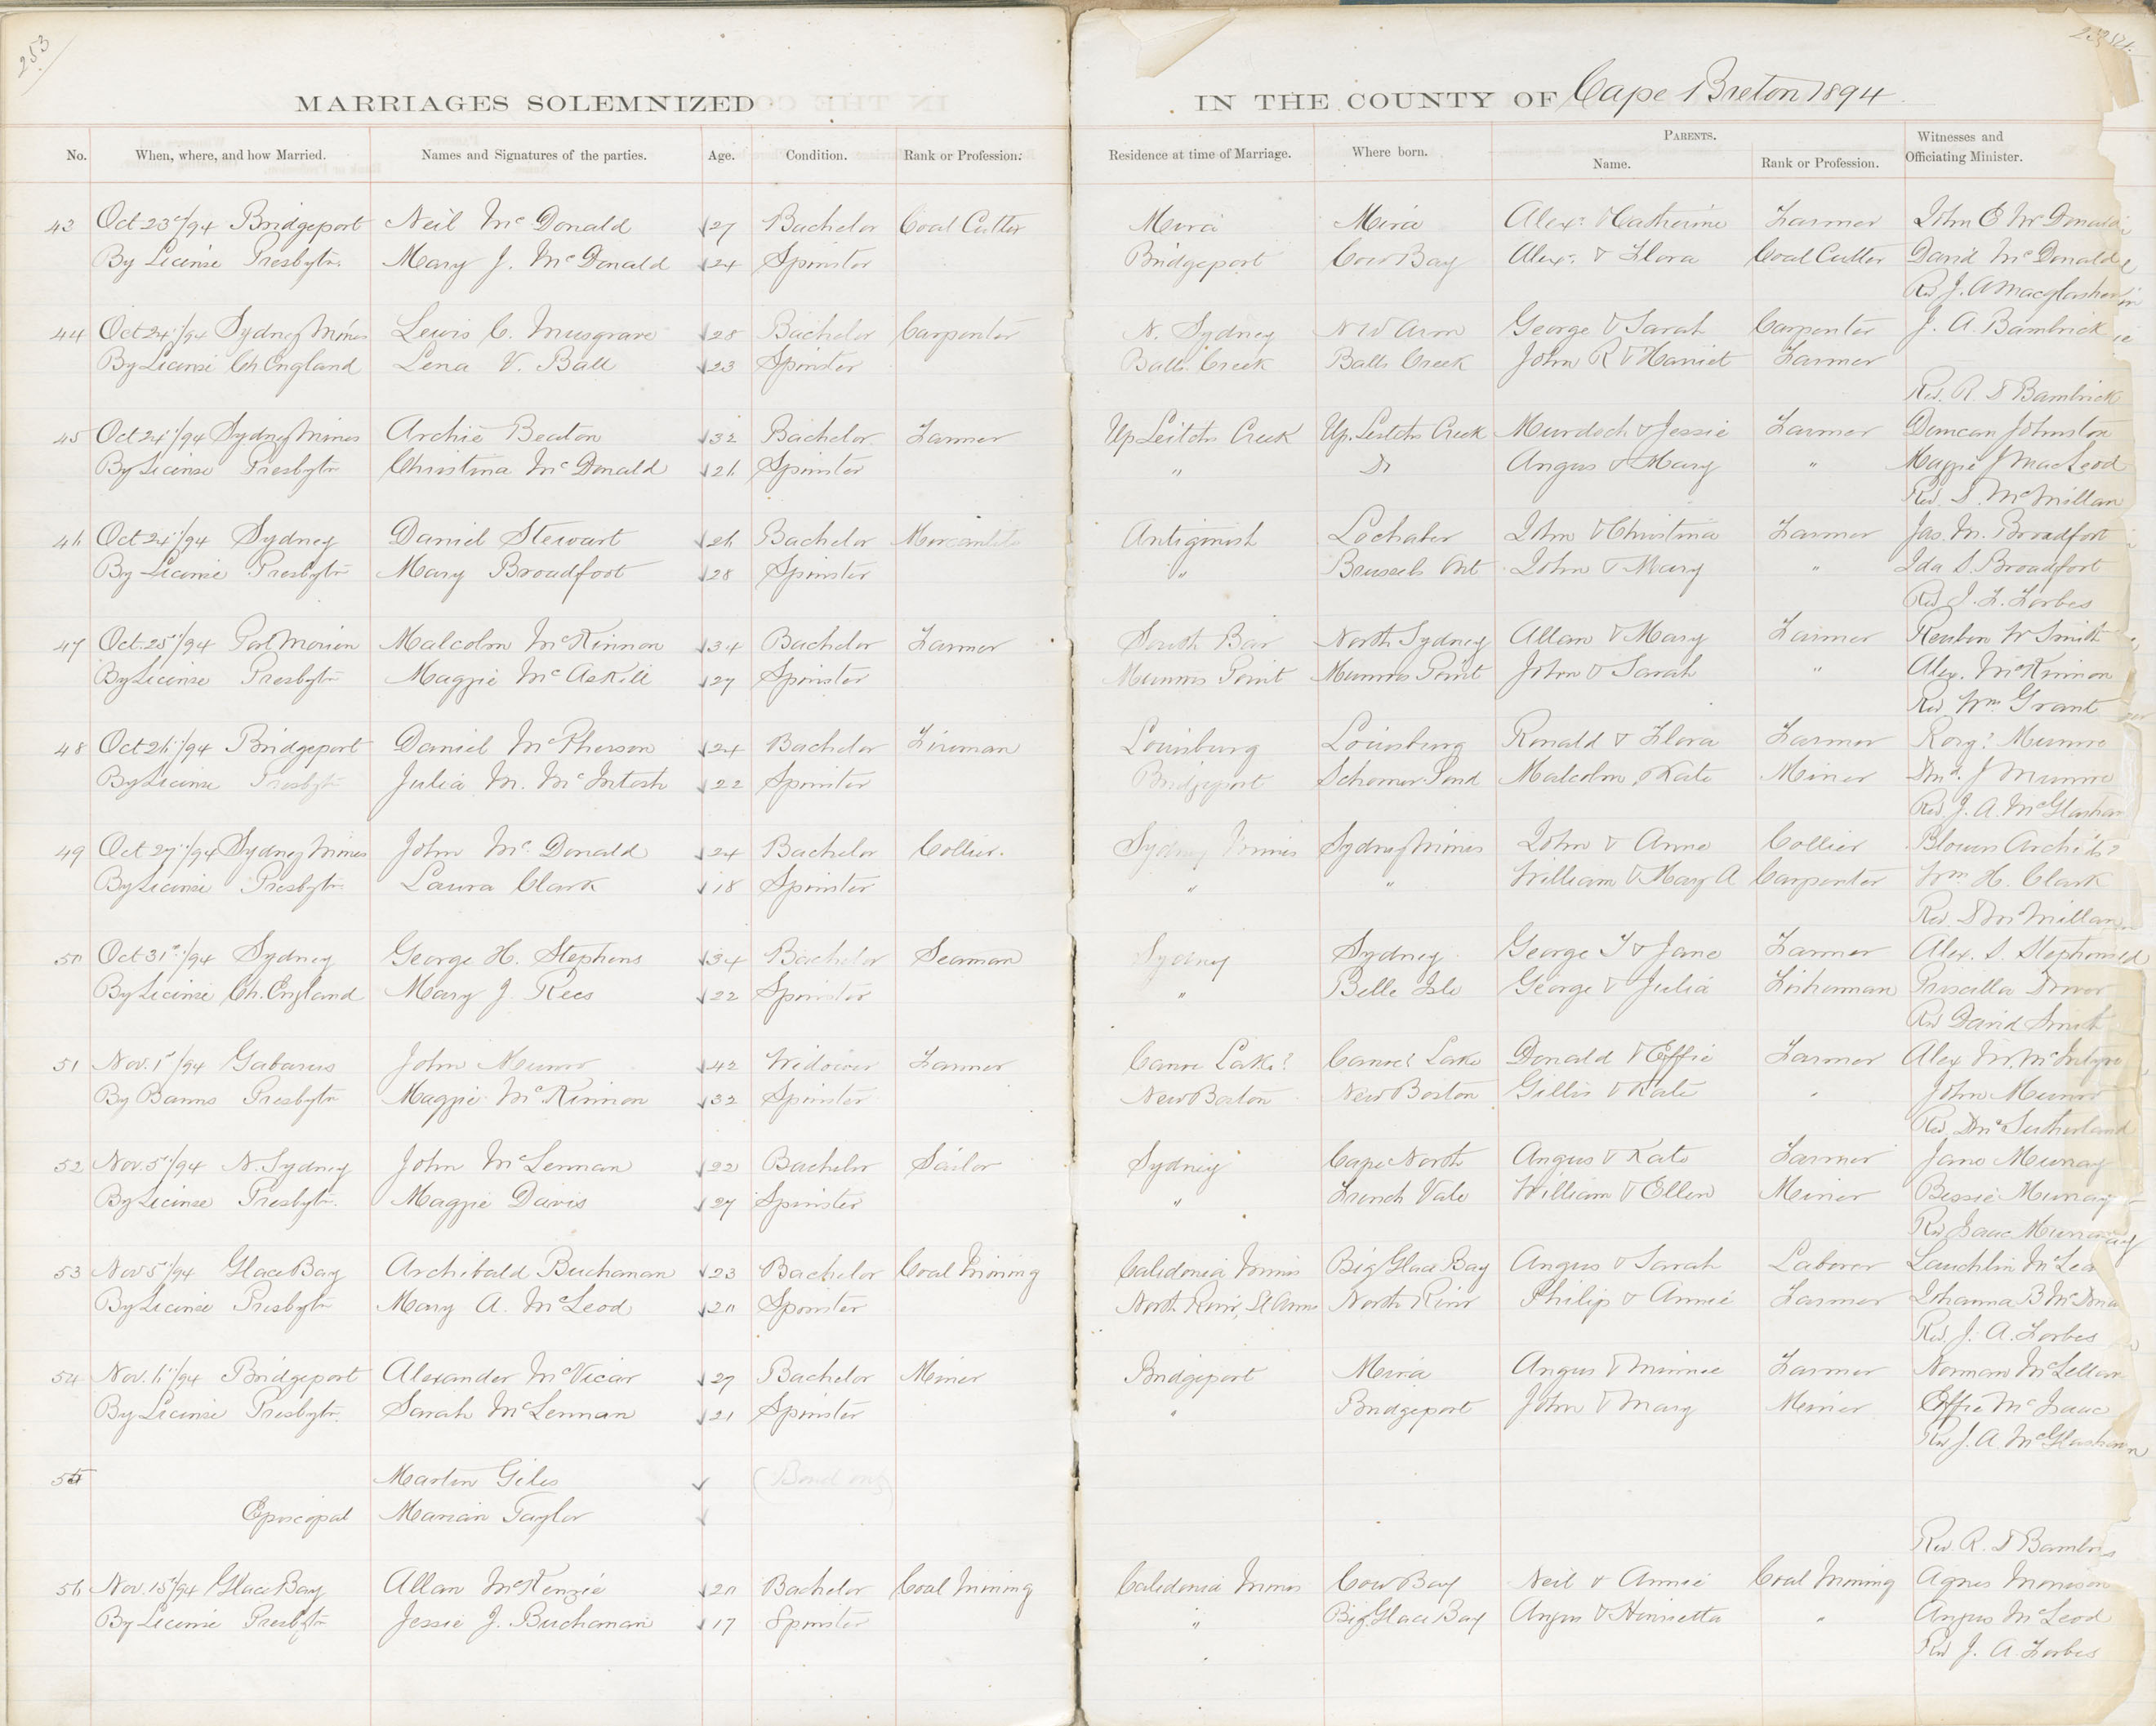 253
MARRIAGES SOLEMNIZED
IN THE COUNTY OF Cape Breton 1894
No. When, where, and how Married. Names and Signatures of the parties. Age. Condition. Rank or Profession. Residence at time of Marriage. Where born. PARENTS. Name. Rank or Profession. Witnesses and Officiating Minister.
43 Oct 23d/94 Bridgeport Neil McDonald 27 Bachelor Coal Cutter Mira Mira Alexr & Catherine Farmer John C McDonald
By License Presbytn. Mary J. McDonald 24 Spinster Bridgeport Cow Bay Alexr & Flora Coal Cutter David McDonald
Rev J. A Macglashen
44 Oct 24/94 Sydney Mines Lewis C. Musgrave 28 Bachelor Carpenter N. Sydney N W Arm George & Sarah Carpenter J. A. Bambrick
By License Ch England Lena V. Ball 23 Spinster Balls Creek Balls Creek John R & Harriet Farmer
Rev. R. D Bambrick
45 Oct 24/94 Sydney Mines Archie Beaton 32 Bachelor Farmer Up Leitchs Creek Up. Leitchs Creek Murdoch & Jessie Farmer Duncan Johnston
By License Presbytn Christina McDonald 26 Spinster " Do Angus & Mary " Maggie J MacLeod
Rev. D. McMillan
46 Oct 24/94 Sydney Daniel Stewart 26 Bachelor Mercantile Antigonish Lochaber John & Christina Farmer Jas. M. Broadfoot
By License Presbytn Mary Broadfoot 28 Spinster " Brussels Ont John & Mary " Ida S. Broadfoot
Rev J. F. Forbes
47 Oct. 25/94 Port Morien Malcolm McKinnon 34 Bachelor Farmer South Bar North Sydney Allan & Mary Farmer Reuben W Smith
By License Presbytn Maggie McAskill 27 Spinster Munros Point Munros Point John & Sarah " Alex. McKinnon
Rev Wm Grant
48 Oct 26/94 Bridgeport Daniel McPherson 24 Bachelor Fireman Louisburg Louisburg Ronald & Flora Farmer Rory? Munro
By License Presbytn Julia M. McIntosh 22 Spinster Bridgeport Schooner Pond Malcolm & Kate Miner J Munro
Rev J. A. McGlashen
49 Oct 27/94 Sydney Mines John McDonald 24 Bachelor Collier. Sydney Mines Sydney Mines John & Anne Collier
By License Presbytn Laura Clark 18 Spinster " " William & Mary A Carpenter Wm H. Clark
Rev. D McMillan
50 Oct 31st/94 Sydney George H. Stephens 34 Bachelor Seaman Sydney Sydney George T & Jane Farmer Alex. S. Stephens
By License Ch. England Mary J. Rees 22 Spinster " Belle Isle George & Julia Fisherman Priscilla
Rev David Smith
51 Nov. 1st/94 Gabarus John Munro 42 Widower Farmer Canoe Lake? Canoe? Lake Donald & Effie Farmer Alex M. McIntyre
By Banns Presbytn Maggie McKinnon 32 Spinster New Boston New Boston Gillis & Kate " John Munro
Rev. D. Sutherland
52 Nov. 5/94 N. Sydney John McLennan 22 Bachelor Sailor Sydney Cape North Angus & Kate Farmer Jane Murray
By License Presbytn. Maggie Davis 27 Spinster " French Vale William & Ellen Miner Bessie Murray
Rev Isaac Murray
53 Nov 5/94 Glace Bay Archibald Buchanan 23 Bachelor Coal Mining Caledonia Mines Big Glace Bay Angus & Sarah Laborer Lauchlin McLea
By License Presbytn Mary A. McLeod 20 Spinster North River, St Anns North River Philip & Annie Farmer Johanna B McDona
Rev. J. A. Forbes
54 Nov. 6/94 Bridgeport Alexander McVicar 27 Bachelor Miner Bridgeport Mira Angus & Minnie Farmer Norman McLellan
By License Presbytn. Sarah McLennan 21 Spinster " Bridgeport John & Mary Miner Effie McIsaac
Rev J. A. McGlashen
55 Martin Giles (Bond only)
Episcopal Marian Taylor
Rev. R. D Bambri
56 Nov. 15/94 Glace Bay Allan McKenzie 20 Bachelor Coal Mining Caledonia Mines Cow Bay Neil & Annie Coal Mining Agnes Morrison
By License Presbytn Jessie J. Buchanan 17 Spinster " Big Glace Bay Angus & Henrietta " Angus McLeod
Rev J. A. Forbes